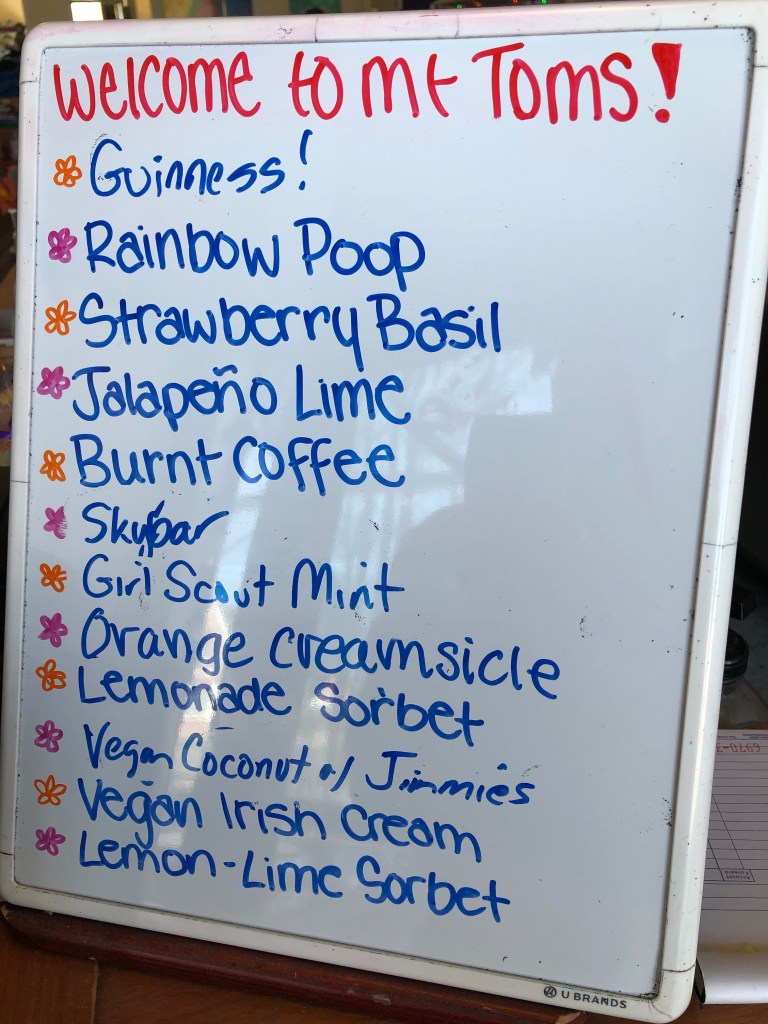 Welcome to mt Toms!
Guinness!
Rainbow Poop
Strawberry Basil
Jalapeño Lime
Burnt Coffee
Skybar
Girl Scout Mint
Orange Creamsicle
Lemonade Sorbet
Vegan Coconut w/ Jimmies
Vegan Irish Cream
Lemon-Lime Sorbet
U BRANDS
6970-3